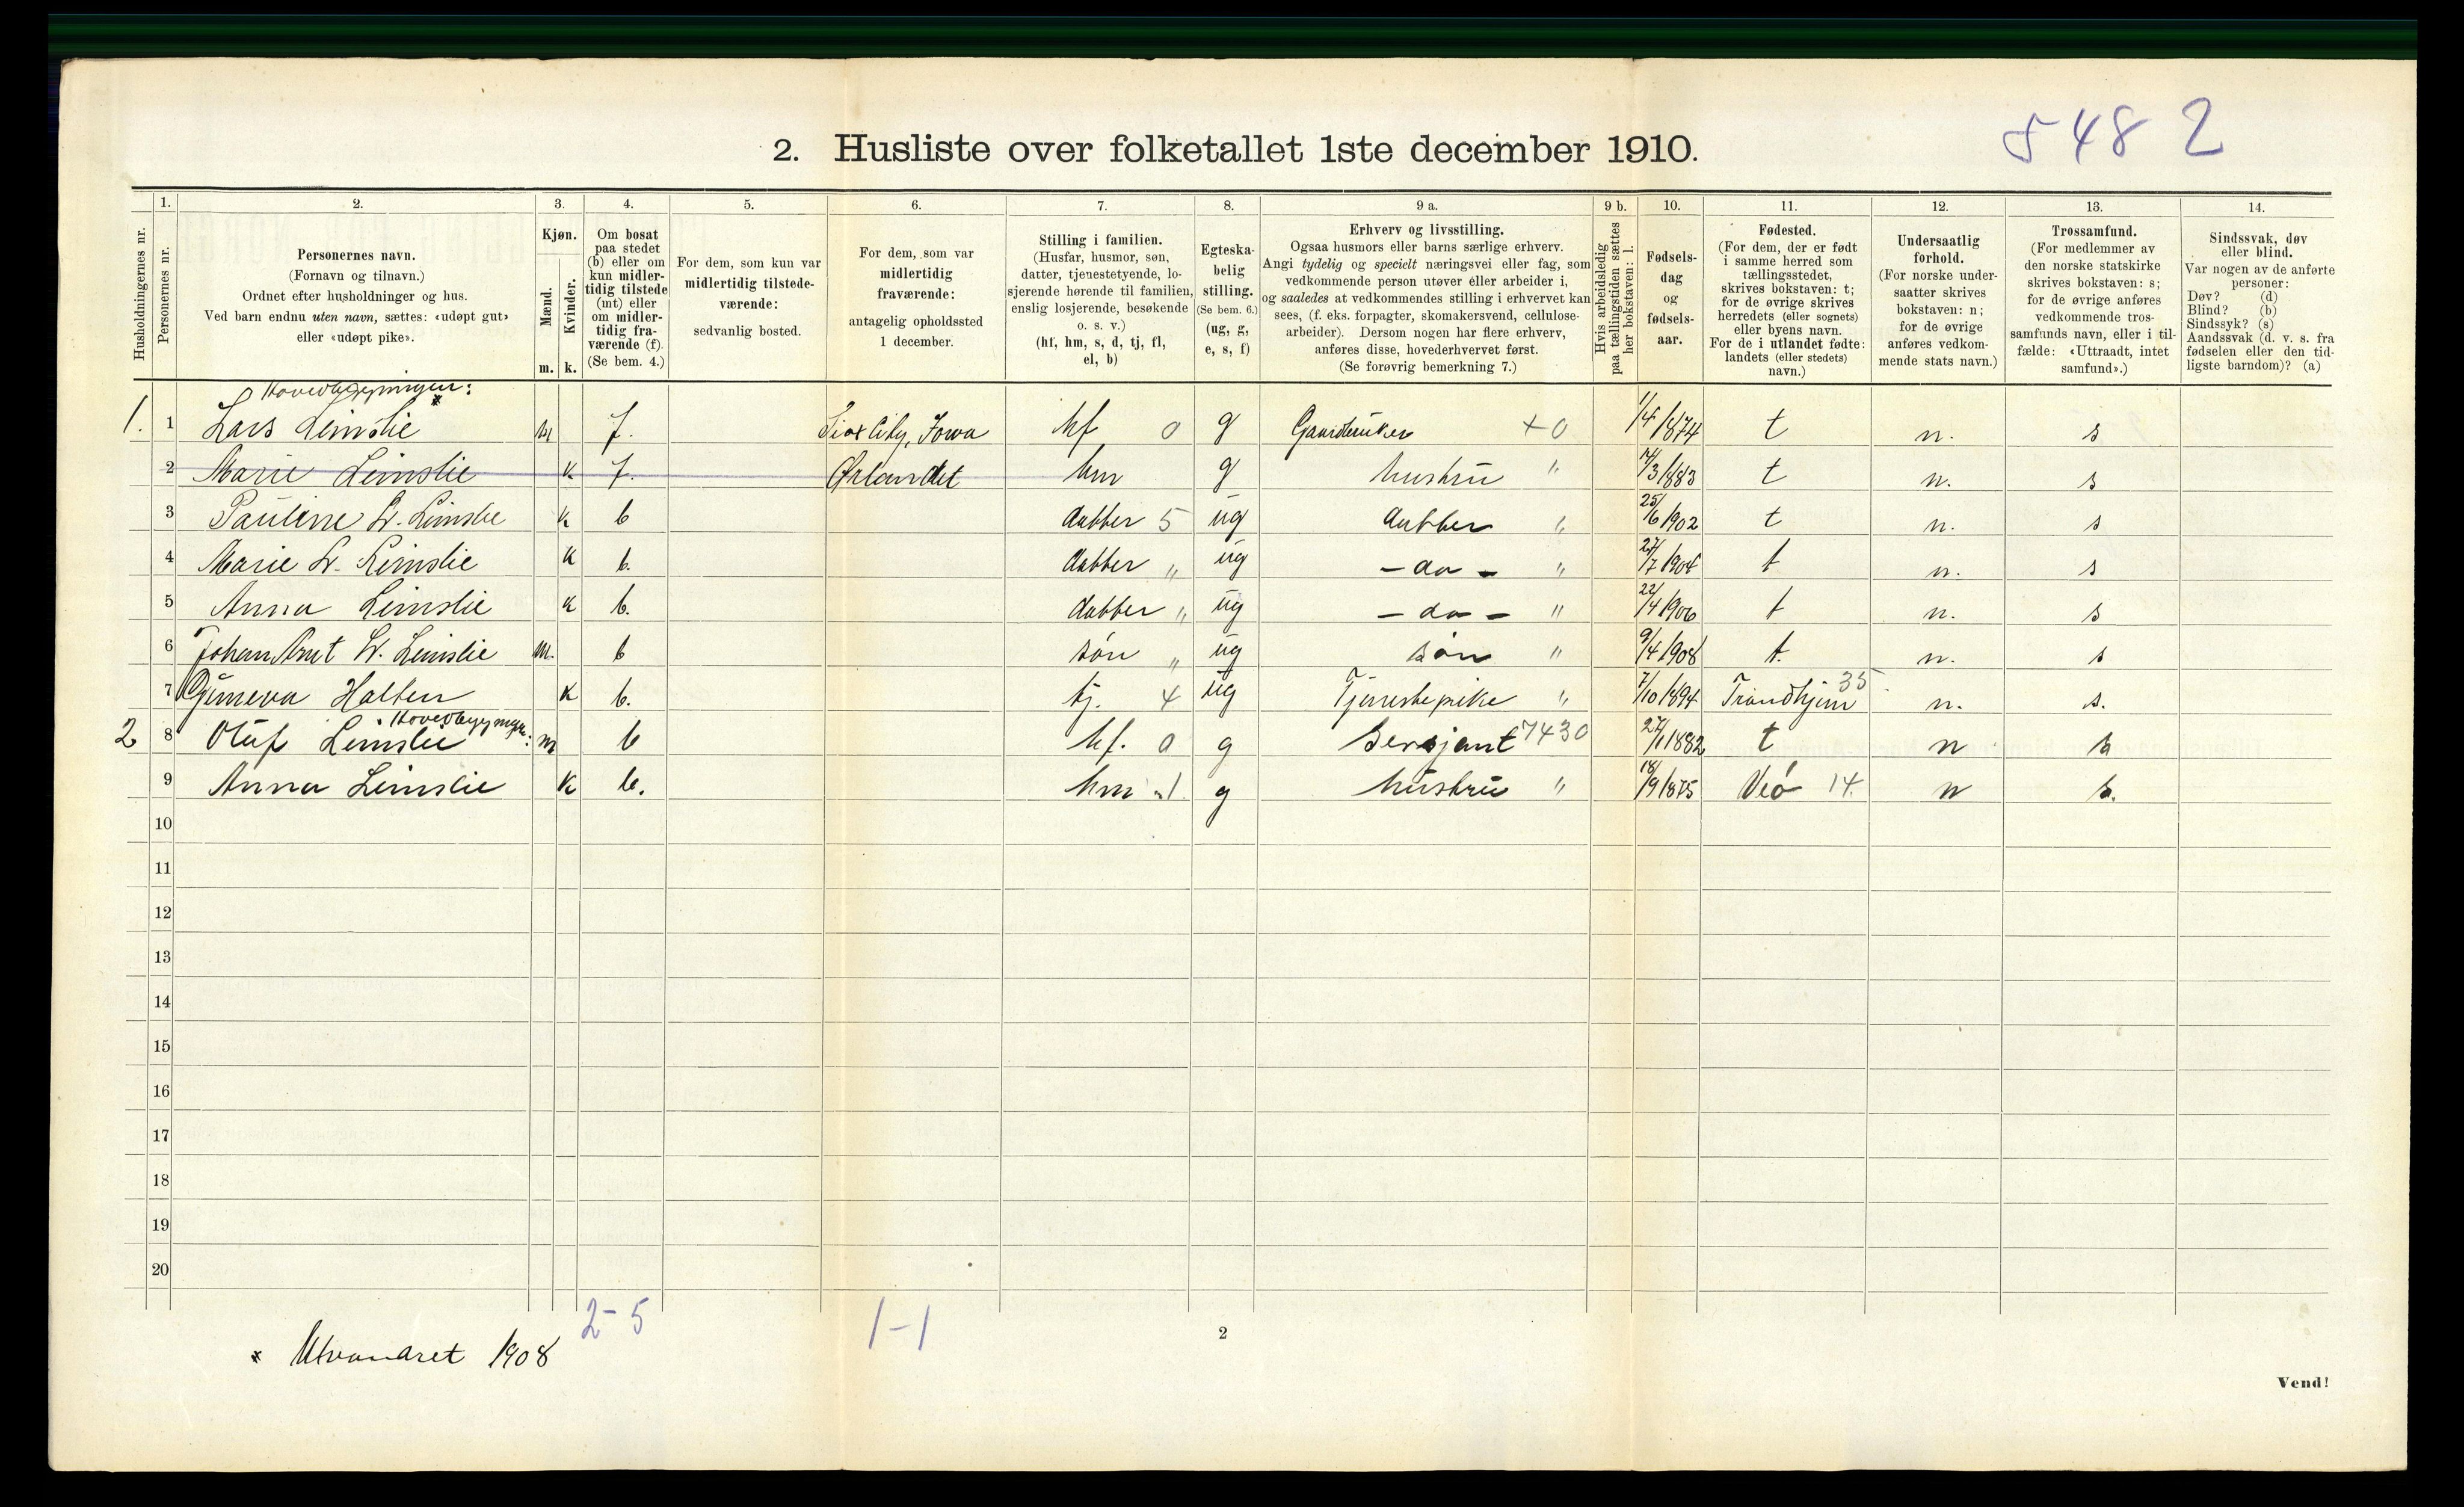 5482
2. Husliste over folketallet 1ste december 1910.
Husholdningernes nr.
1.
Personernes nr.
2.
Personernes navn.
(Fornavn og tilnavn.)
Ordnet efter husholdninger og hus.
Ved barn endnu uten navn, sættes: «udøpt gut»
eller «udøpt pike».
3.
Kjøn.
Mænd.
Kvinder.
m. k.
4.
Om bosat
paa stedet
(b) eller om
kun midler-
tidig tilstede
(mt) eller
om midler-
tidig fra-
værende (f).
(Se bem. 4.)
5.
For dem, som kun var
midlertidig tilstede-
værende:
sedvanlig bosted.
6.
For dem, som var
midlertidig
fraværende:
antagelig opholdssted
1 december.
7.
Stilling i familien.
(Husfar, husmor, søn,
datter, tjenestetyende, lo-
sjerende hørende til familien,
enslig losjerende, besøkende
o. s. v.)
(hf, hm, s, d, tj, fl,
el, b)
8.
Egteska-
belig
stilling.
(Se bem. 6.)
(ug, g,
e, s, f)
9 a.
Erhverv og livsstilling.
Ogsaa husmors eller barns særlige erhverv.
Angi tydelig og specielt næringsvei eller fag, som
vedkommende person utøver eller arbeider i,
og saaledes at vedkommendes stilling i erhvervet kan
sees, (f. eks. forpagter, skomakersvend, cellulose-
arbeider). Dersom nogen har flere erhverv,
anføres disse, hovederhvervet først.
(Se forøvrig bemerkning 7.)
9 b.
Hvis arbeidsledig
paa tællingstiden sættes
her bokstaven: l.
10.
Fødsels-
dag
og
fødsels-
aar.
11.
Fødested.
(For dem, der er født
i samme herred som
tællingsstedet,
skrives bokstaven: t;
for de øvrige skrives
herredets (eller sognets)
eller byens navn.
For de i utlandet fødte:
landets (eller stedets)
navn.)
12.
Undersaatlig
forhold.
(For norske under-
saatter skrives
bokstaven: n;
for de øvrige
anføres vedkom-
mende stats navn.)
13.
Trossamfund.
(For medlemmer av
den norske statskirke
skrives bokstaven: s;
for de øvrige anføres
vedkommende tros-
samfunds navn, eller i til-
fælde: «Uttraadt, intet
samfund».)
14.
Sindssvak, døv
eller blind.
Var nogen av de anførte
personer:
Døv? (d)
Blind? (b)
Sindssyk? (s)
Aandssvak (d. v. s. fra
fødselen eller den tid-
ligste barndom)? (a)
Hovedbygningen:
1. 1 Lars Leinslie * m f. Siox City, Iowa hf 0 g Gaardbruker +0 1/4 1874 t n. s
2 Marie Leinslie k f. Ørlandet hm g hustru " 14/3 1883 t n. s
3 Pauline L. Leinslie k b datter 5 ug datter " 25/6 1902 t n. s
4 Marie L. Leinslie k b. datter " ug - do - " 27/7 1904 t n. s
5 Anna Leinslie k b. datter " ug - do - " 22/4 1906 t n. s
6 Johan Arnt L. Leinslie m. b søn " ug søn " 9/4 1908 t. n. s
7 Halten k b. tj. 4 ug Tjenestepike " 7/10 1894 Trondhjem 35 n. s.
Hovedbygningen:
2 8 Oluf Leinslie m b hf. 0 g Sersjant 7430 27/1 1882 t n s
9 Anna Leinslie k b. hm "1 g hustru " 18/9 1875 Veø 14. n s.
10
11
12
13
14
15
16
17
18
19
20
2-5
1-1
2
* Utvandret 1908
Vend!